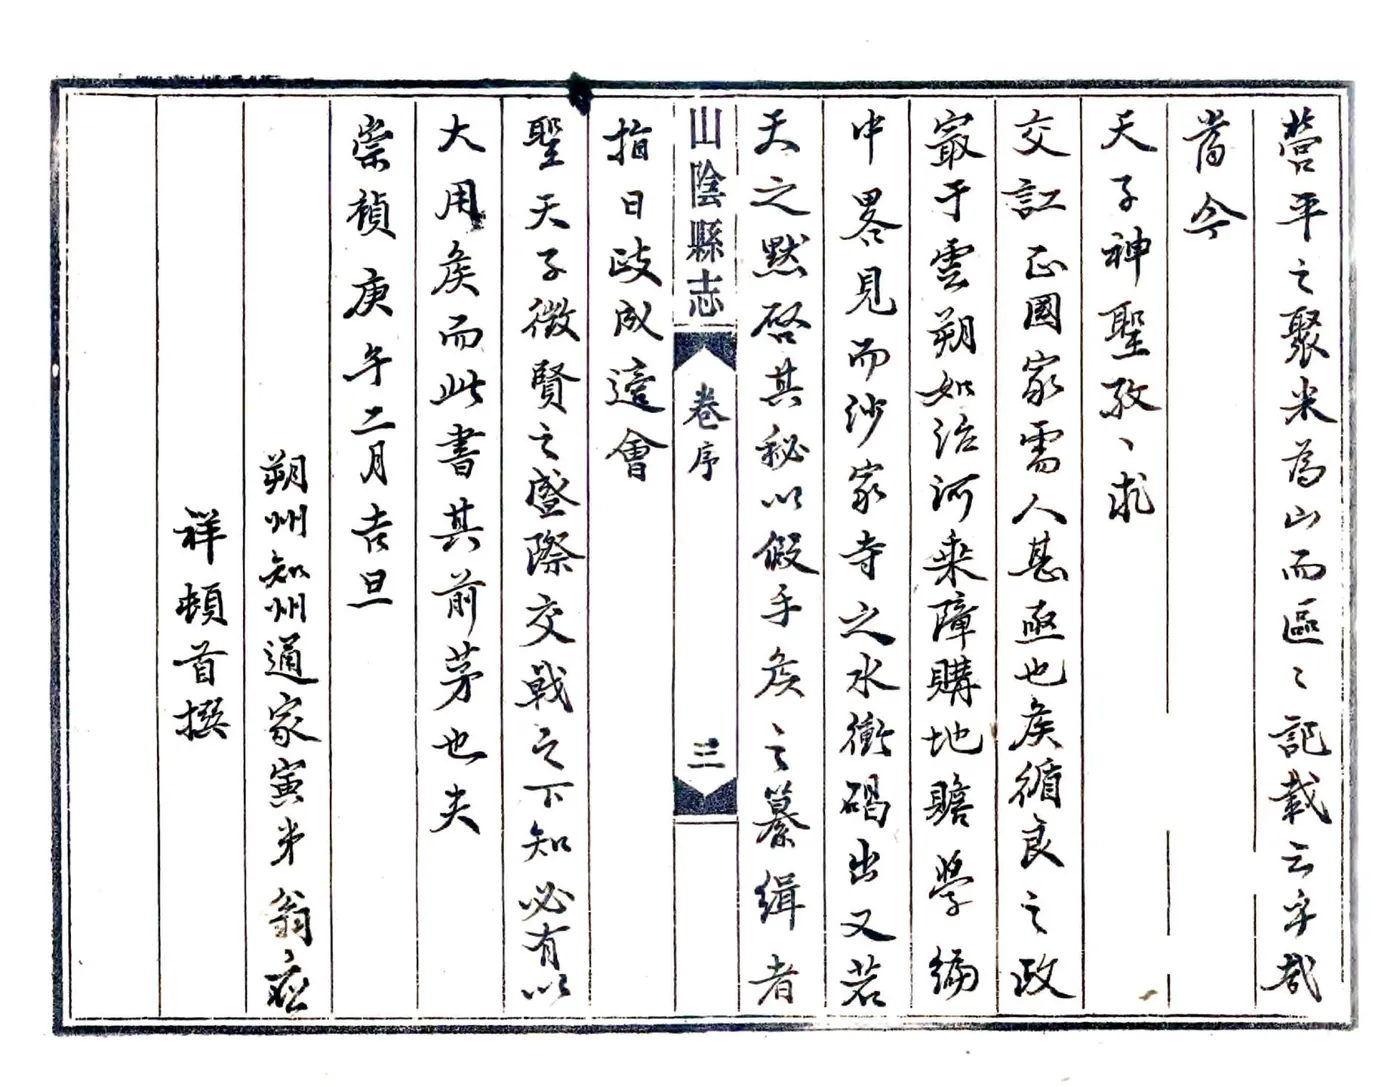 營平之聚米為山而區〻記載云乎哉
當今
天子神聖孜〻求
交訌正國家需人甚亟也侯循良之政
最于雲朔如治河来障購地贍學編
中畧見而沙家寺之水衝碣出又若
天之默啓其秘以假手侯之纂緝者
山陰縣志
卷序
三
指日政成這會
聖天子徵賢之盛際交戟之下知必有以
大用侯而此書其前茅也夫
崇禎庚午二月吉旦
朔州知州通家寅弟翁應
祥頓首撰